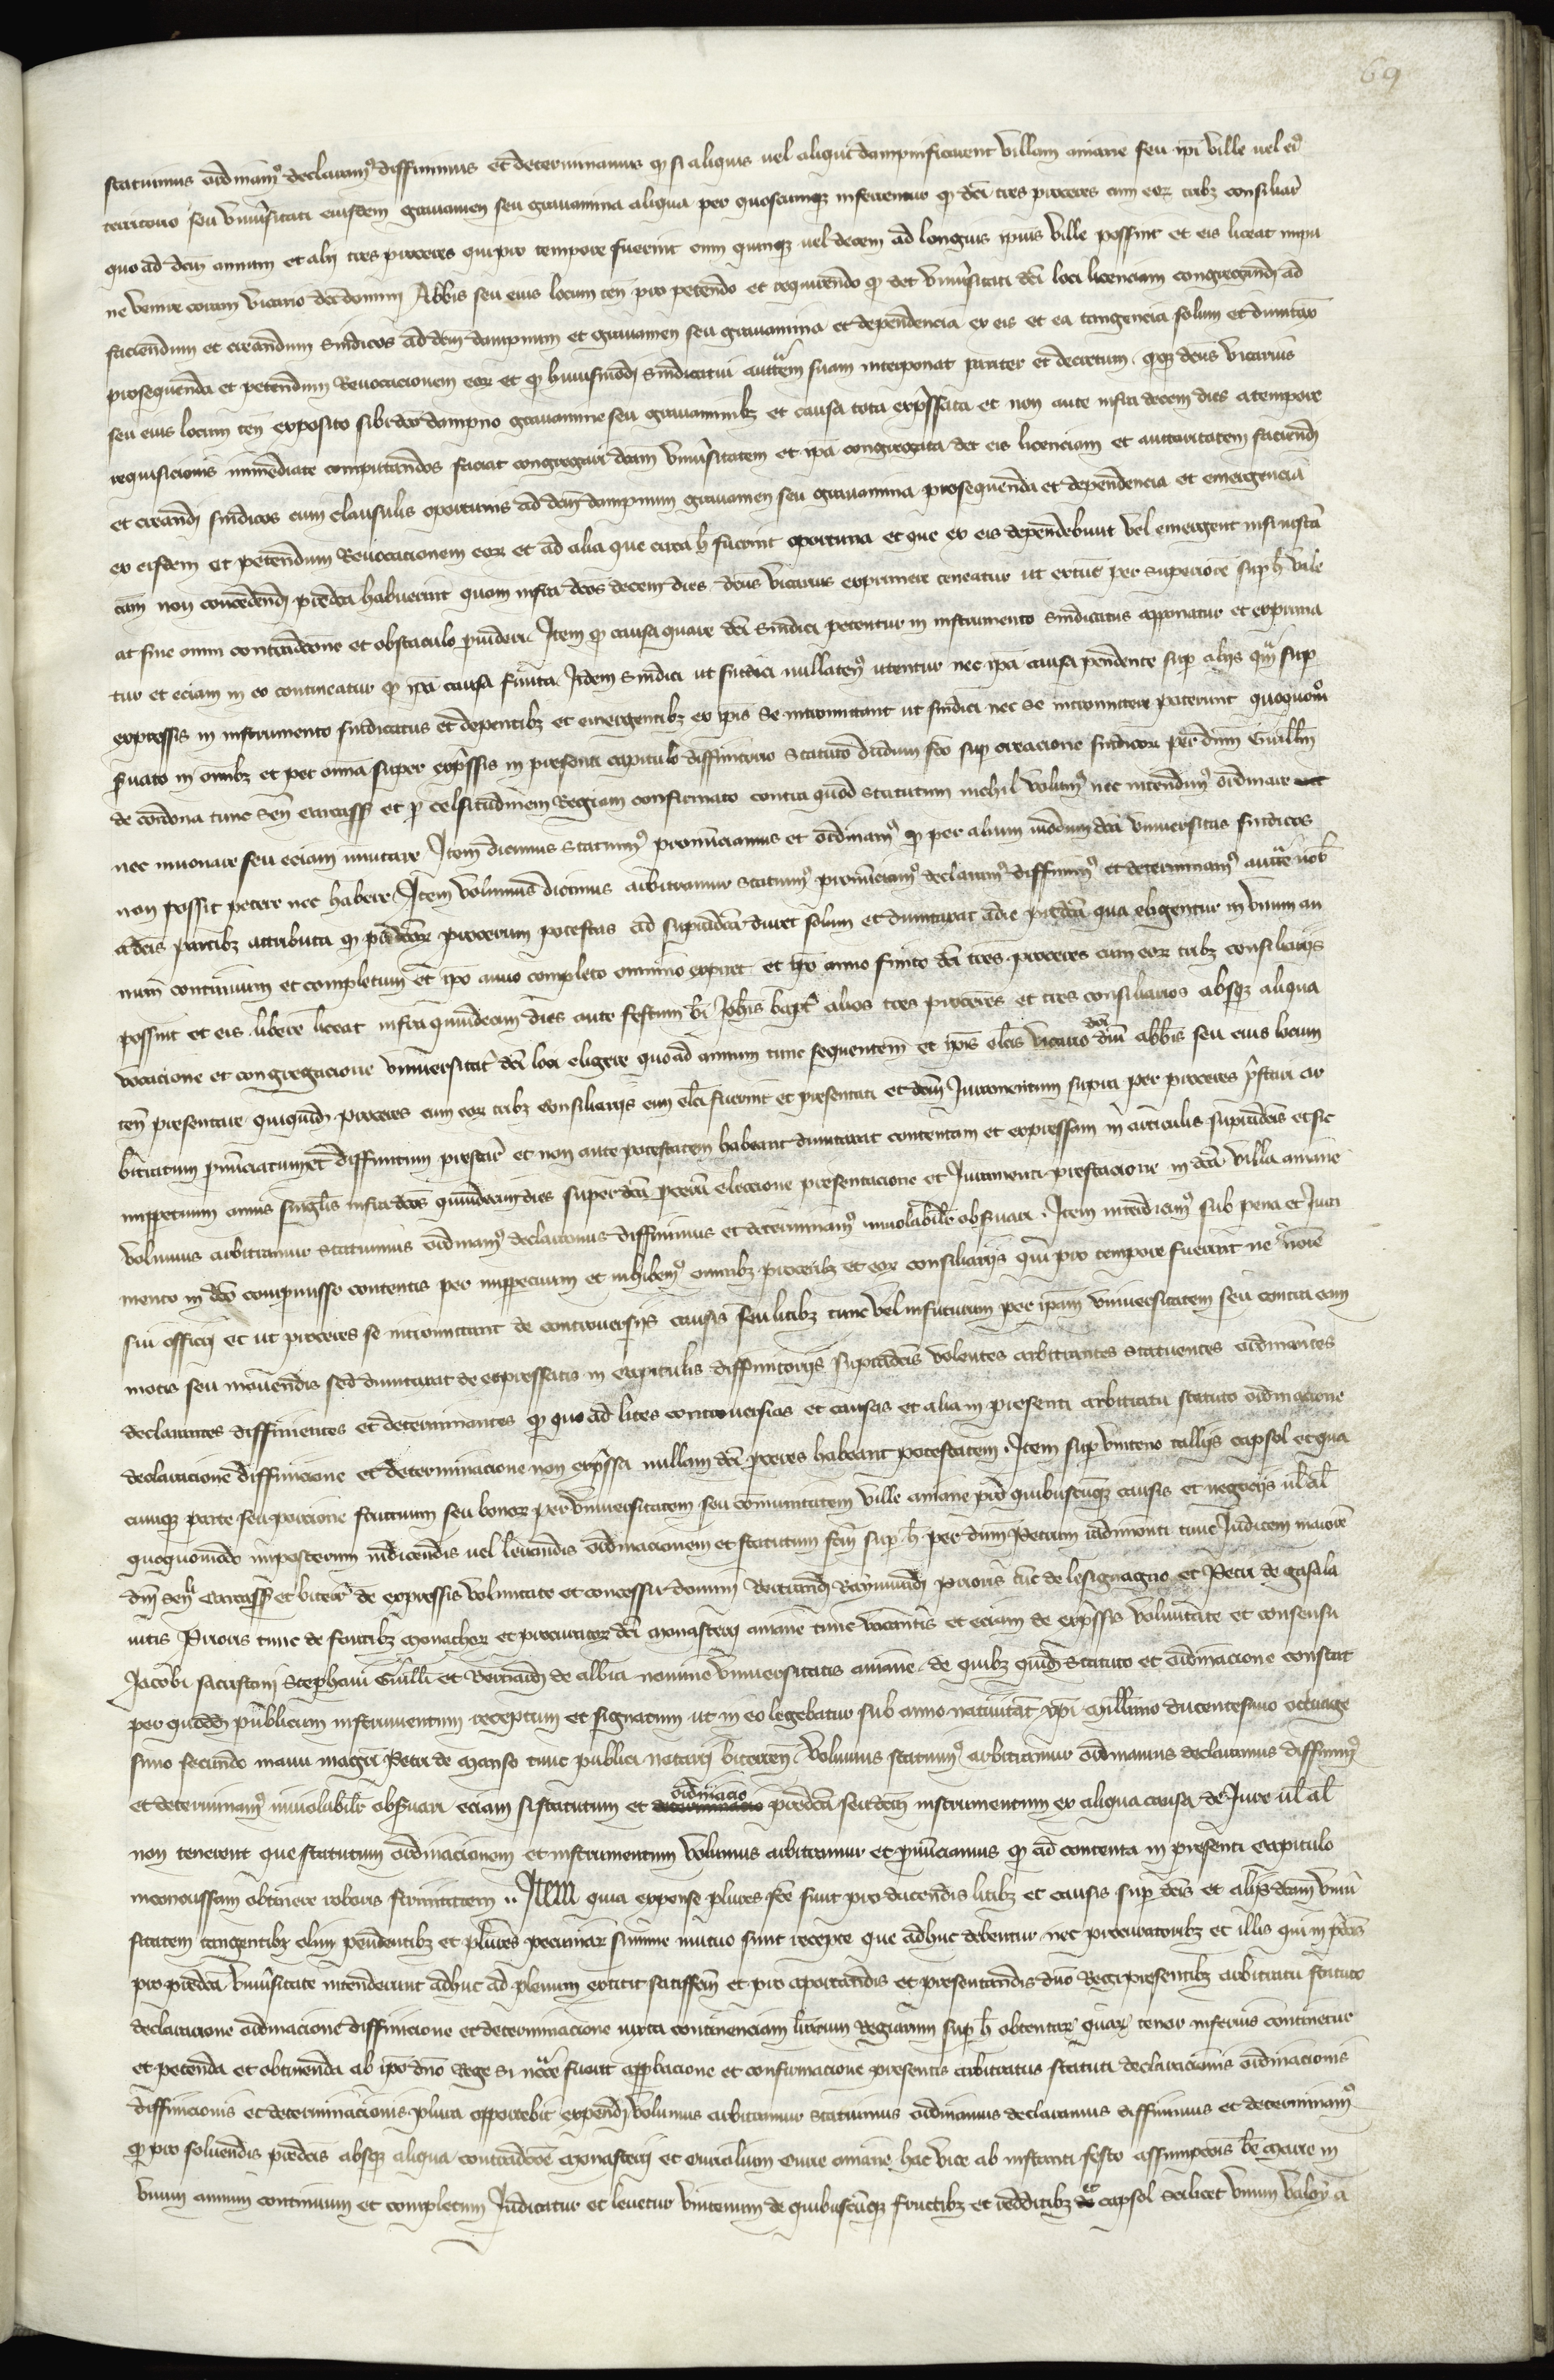 69
statuimus ordinamꝰ declaramꝰ diffinimus et determinamus ꝙ si aliquis uel aliqui dampnificarent villam aniane seu ipi ville uel eiꝰ
territorio seu vniuͥsitati eiusdem grauamen seu grauamina aliqua per quoscumqꝫ inferrentur ꝙ dci tres proceres cum eoꝝ tribꝫ consiliar
quo ad dcm annum et alij tres proceres qui pro tempore fuerint cum quinqꝫ uel decem ad longius ipius ville possint et eis liceat inpu
ne venire coram vicario dci domini Abbis seu eius locum ten pro petendo et requirendo ꝙ det vniuͥsitati dci loci licenciam congregandi ad
faciendum et creandum sindicos ad dcm dampnum et grauamen seu grauamina et dependencia ex eis et ea tangencia solum et dumtax
prosequenda et petendum Reuocacionem eoꝝ et ꝙ huiusmodi sindicatui auttem suam interponat pariter et decretum. qꝫ dcus vicarius
seu eius locum ten exposito sibi dco dampno grauamine seu grauaminibꝫ et causa tota expͥssata et non ante infra decem dies a tempore
requisicionis immediate computandos faciat congregari dcam vniuͥsitatem et ipa congregata det eis licenciam et auctoritatem faciendi
et creandi sindicos cum clausulis oportunis ad dcm dampnum grauamen seu grauamina prosequenda et dependencia et emergencia
ex eisdem et petendum Reuocacionem eoꝝ et ad alia que circa h fuerint oportuna et que ex eis dependebunt vel emergent nisi iusta
cam non concedendi predca habuerint quam infra dcos decem dies dcus vicarius exprimere teneatur ut extunc per superiorē sup h vale
at sine omni contradcone et obstaculo prouideri. Item ꝙ causa quare dci sindici petentur in instrumento sindicatus apponatur et exprima
tur et eciam in eo contineatur ꝙ ipa causa finita Idem sindici ut sindici nullatenꝰ utentur nec ipa causa pendente sup alijs qm sup
expressis in instrumento sindicatus et depentibꝫ et emergentibꝫ ex ipis se intromittant ut sindici nec se intromittere poterunt quoquomō
seruato in omibꝫ et per omia super expͥssis in presenti capitulo diffinitorio statuto dudum fco sup creacione sindicoꝝ per dnm Guillm
de condona tunc sen carcass et p celsitudinem Regiam confirmato contra quod statutum nichil volumꝰ nec intendimꝰ ordinare
nec innouare seu eciam inmutare Item dicimus statuimꝰ pronunciamus et ordinamꝰ ꝙ per alium modum dca vniuersitas sindicos
non possit petere nec habere. Item volumus dicimus arbitramur statuimꝰ pronunciamꝰ declaramꝰ diffinimꝰ et determinamꝰ autte nob
a dcis partibꝫ attributa ꝙ predcoꝝ procerum potestas ad supradca duret solum et dumtaxat a die predca qua eligentur in vnum an
num continuum et completum et ipo anno completo omnino expiret et ipo anno finito dci tres proceres cum eoꝝ tribꝫ consiliarijs
possint et eis libere liceat infra quindecim dies ante festum bi Iohis bapt alios tres proceres et tres consiliarios absqꝫ aliqua
vocacione et congregacione vniuersitat dci loci eligere quo ad annum tunc sequentem et ipis elcis vicario dci dni abbis seu eius locum
ten presentare quiquidem proceres cum eoꝝ tribꝫ consiliarijs cum elci fuerint et presentati et dcm Iuramentum supra per proceres pͥstari ar
bitratum pnunciatum et diffinitum prestar et non ante potestatem habeant dumtaxat contentam et expressam in articulis supradcis et sic
imppetuum annis singlis infra dcos quindecim dies super dca procerum eleccione presentacione et Iuramenti prestacione in dca villa aniane
volumus arbitramur statuimus ordinamꝰ declaramus diffinimus et determinamꝰ inuiolabilr obseruari. Item interdicimꝰ sub pena et Iura
mento in dco compmisso contentis per imppetuum et inhibemꝰ omnibꝫ proceribꝫ et eoꝝ consiliarijs qui pro tempore fuerint ne noie
sui officij et ut proceres se intromittant de controuersijs causis seu litibꝫ tunc vel infuturum per ipam vniuersitatem seu contra eam
motis seu mouendis sed dumtaxat de expressatis in capitulis diffinitorijs supradcis volentes arbitrantes statuentes ordinantes
declarantes diffinientes et determinantes ꝙ quo ad lites controuersias et causas et alia in presenti arbitratu statuto ordinacione
declaracione diffinicione et determinacione non expͥssa nullam dci proceres habeant potestatem. Item sup vinteno tallijs capsol et qua
cumqꝫ parte seu porcione fructuum seu bonoꝝ per vniuersitatem seu comunitatem ville aniane pro quibuscumqꝫ causis et negocijs ul al
quoquomodo imposterum indicendis uel leuandis ordinacionem et statutum fcm sup h per dnm Petrum radimonti tunc Iudicem maiorē
dni sen carcass et biterr de expressis voluntate et concessu domini Bertrandi Raymundi prioris tunc de lesignagno et Petri de gasala
nitis Prioris tunc de fontibꝫ monachoꝝ et procuratoꝝ dci monasterij aniane tunc vacantis et eciam de expͥssis voluntate et consensu
Iacobi sacristani Stephani Guilli et Bernardi de albia nomine vniuersitatis aniane. de quibꝫ quidē statuto et ordinacione constat
per quoddam publicum instrumentum receptum et signatum ut in eo legebatur sub anno natiuitat xpi millimo ducentesimo octuage
simo secundo manu magri Petri de manso tunc publici notarij biterren. volumus statuimꝰ arbitramur ordinamus declaramus diffinimꝰ
et determinamꝰ inuiolabilr obseruari eciam si statutum et ordinacio predca seu dcm instrumentum ex aliqua causa de Iure ul al
non tenerent que statutum ordinacionem et instrumentum volumus arbitramur et pnunciamus ꝙ ad contenta in presenti capitulo
inconcussam obtinere roboris firmitatem .. Item quia expense plures fce sunt pro ducendis litibꝫ et causis sup dcis et alijs dcam vniuͥ
sitatem tangentibꝫ olim pendentibꝫ et plures pecuniaꝝ summe mutuo sunt recepte que adhuc debentur. nec procuratoribꝫ et illis qui in pdcis
pro predca vniuͥsitate intenderunt adhuc ad plenum extitit satisffcm et pro aportandis et presentandis dno Regi presentibꝫ arbitratu statuto
declaracione ordinacione diffinicione et determinacione iuxta continenciam lrarum Regiarum sup h obtentaꝝ quaꝝ tenor inferius continetur
et petenda et obtinenda ab ipo dno Rege si ncce fuerit approbacione et confirmacione presentis arbitratus statuti declaracionis ordinacionis
diffinicionis et determinacionis plura opportebit expendi volumus arbitramur statuimus ordinamus declaramus diffinimus et determinamꝰ
ꝙ pro soluendis predcis absqꝫ aliqua contradcoē monasterij et curialium curie aniane hac vice ab instanti festo assumpcois be marie in
vnum annum continuum et completum Indicatur et leuetur vintenum de quibuscumqꝫ fructibꝫ et redditibꝫ capsol scilicet vnum